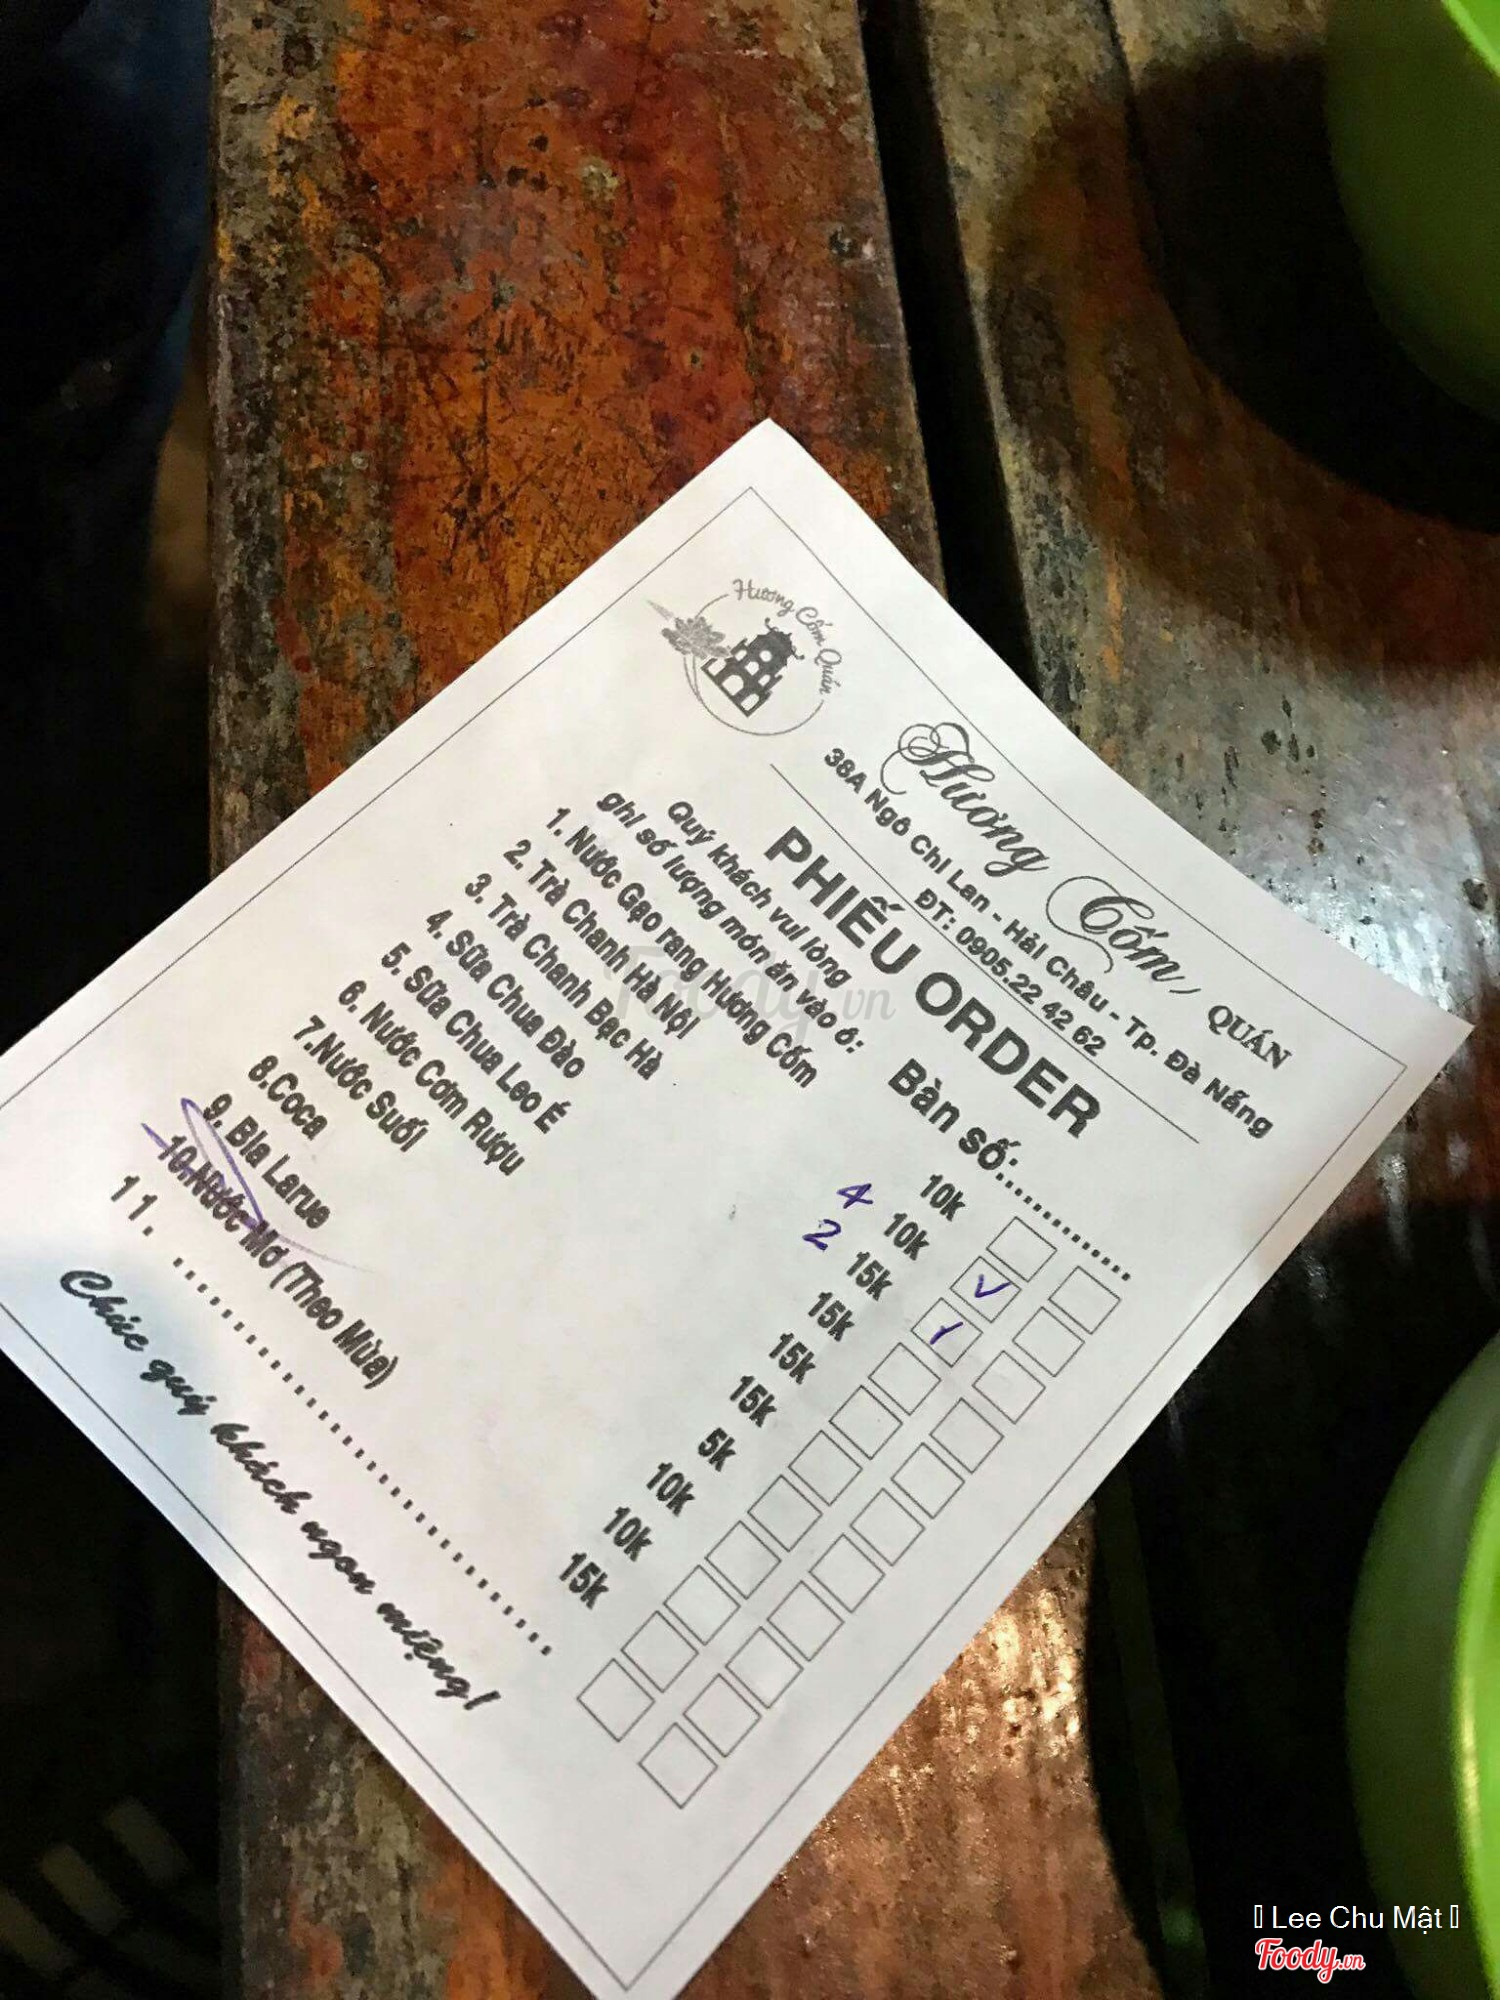 Hương Cốm Quán
Hương Cốm QUÁN
38A Ngô Chi Lan - Hải Châu - Tp. Đà Nẵng
ĐT: 0905.22 42 62
PHIẾU ORDER
Bàn số:....................
Quý khách vui lòng
ghi số lượng món ăn vào ô:
1. Nước Gạo rang Hương Cốm 10k
2. Trà Chanh Hà Nội 4 10k ✓
3. Trà Chanh Bạc Hà 2 15k
4. Sữa Chua Đào 15k
5. Sữa Chua Leo É 15k
6. Nước Cơm Rượu 15k
7.Nước Suối 5k
8.Coca 10k
9. Bia Larue 10k
10.Nước Mơ (Theo Mùa) 15k
11. ..............................
Chúc quý khách ngon miệng!
Foody.vn
Lee Chu Mật
Foody.vn